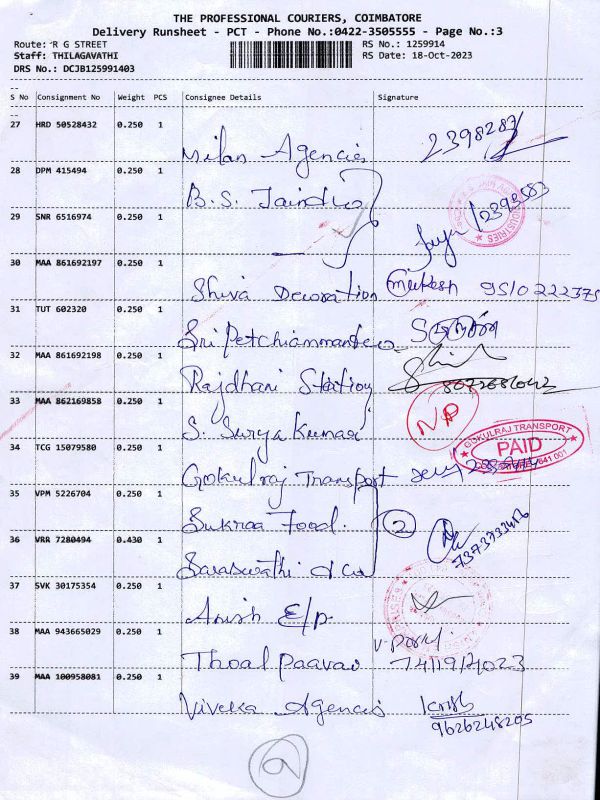 THE PROFESSIONAL COURIERS, COIMBATORE
Delivery Runsheet - PCT - Phone No.:0422-3505555 - Page No.:3
Route: R G STREET RS No.: 1259914
Staff: THILAGAVATHI RS Date: 18-Oct-2023
DRS No.: DCJB125991403
S No Consignment No Weight PCS Consignee Details Signature
27 HRD 50528432 0.250 1
Milan Agencies 2398287
28 DPM 415494 0.250 1
B.S. 2393583
29 SNR 6516974 0.250 1
30 MAA 861692197 0.250 1
Shiva Decoration Mukesh
31 TUT 602320 0.250 1
Sri
32 MAA 861692198 0.250 1
Rajdhani
33 MAA 862169858 0.250 1
S. Surya Kumar NP
34 TCG 15079580 0.250 1
GOKULRAJ TRANSPORT
PAID
641 001
Gokulraj Transport
35 VPM 5226704 0.250 1
Sukraa Food. 2
36 VRR 7280494 0.430 1
7373733416
Saraswathi
37 SVK 30175354 0.250 1
Anish E/p.
38 MAA 943665029 0.250 1
Thoal Paavai
39 MAA 100958081 0.250 1
Viveka Agencies
9626248205